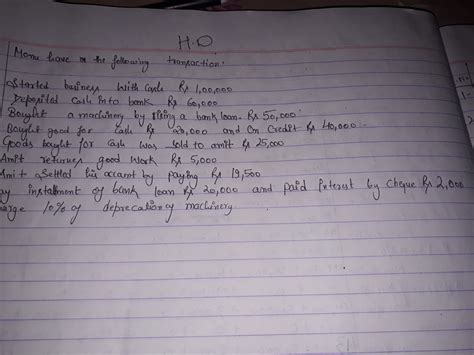 H.D
Monu have on the following transaction.
Started business with cash Rs 1,00,000
Deposited cash into bank Rs 60,000
Bought a machinery by a bank loan Rs 50,000
Bought good for cash Rs 20,000 and On Credit Rs 40,000
Goods bought for cash was sold to amit Rs 25,000
Amit returns good Work Rs 5,000
mit Settled his accant by paying Rs 19,500
ay instalment of bank loan Rs 20,000 and paid interest by cheque Rs 2,000
harge 10% of machinery